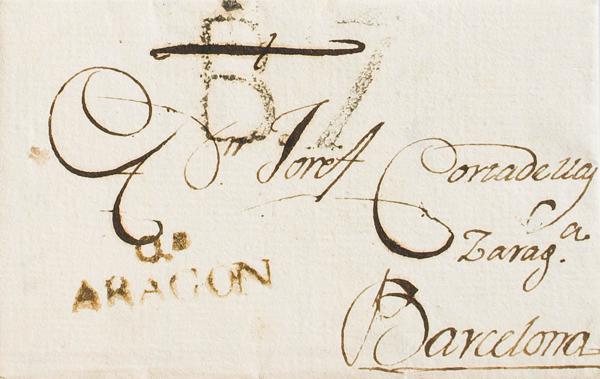 B.7
A Dn Josef Cortadellas
Zarag.a
ARAGON
Barcelona